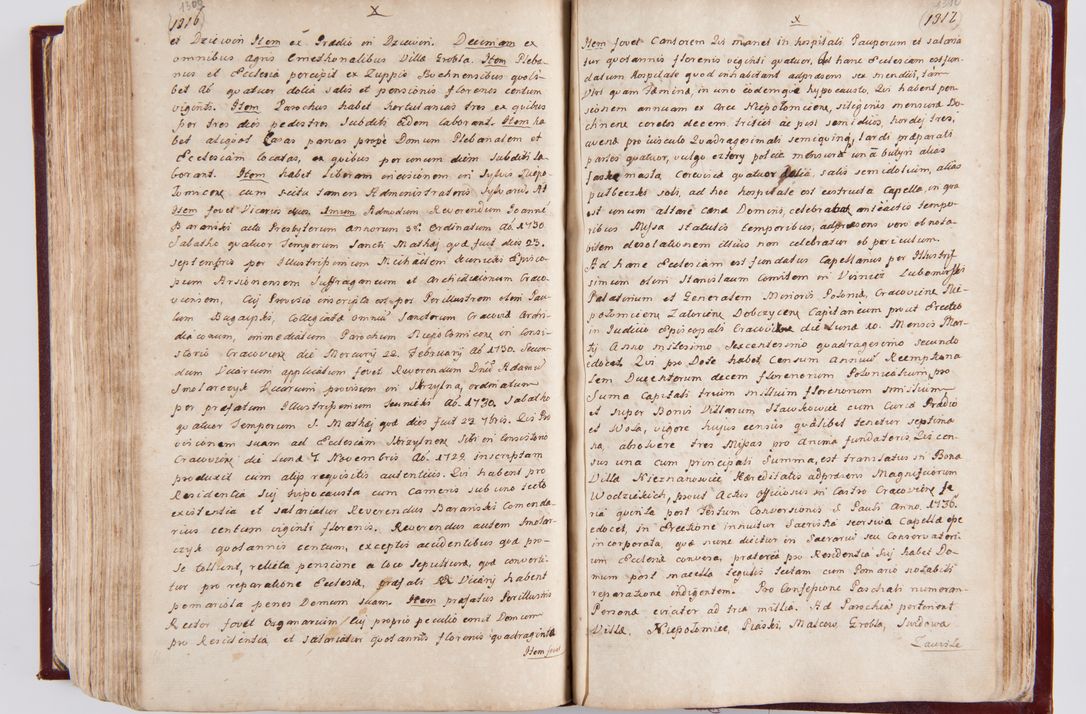 1316
X
et Dziewin Item ex Prædio in Dziewin. Decimam ex
omnibus agris Cmethonalibus Villæ Grobla. Item Pleba-
nus et Ecclesia percipit ex Zuppis Bochnensibus quoli-
bet Aō quatuor dolia salis et pensionis florenos centum
viginti. Item Parochus habet hortulanias tres ex quibus
per tres dies pedestres Subditi Eidem laborant. Item ha-
bet aliquot Casas parvas propè Domum Plebanalem et
Ecclesiam locatas, ex quibus per unum diem subditi la-
borant. Item habet liberam incisionem in Sylvis Niepo-
lomicen: cum scitu tamen Administratoris Sylvarum
Item fovet Vicarios duos Unum Admodum Reverendum Joannē
Baranski actu Presbyterum annorum 38. Ordinatum Aō 1730
Sabatho quatuor Temporum Sancti Mathæj qvd fuit dies 23.
septembris per Illustrissimum Michaëlem Kunicki Episco-
pum Arsionensem Suffraganeum et Archidiaconum Craco-
viensem, Cuj Provisio inscripta est per Perillustrem olim Pau-
lum Bugayski, Collegiatæ omniū Sanctorum Cracoviæ Archi-
diaconum, immediatum Parochum Niepolomicen: in Consi-
storio Cracovien: die Mercurij 22. February Aō 1730. Secun-
dum Vicarium applicatum fovet Reverendum Dnū Adamū
Smolarczyk Vicarium provisum in Skrzylna, ordinatum
per præfatum Illustrissimum Kunicki Aō. 1730. Sabatho
quatuor Temporum S. Mathæj qvd dies fuit 23 7bris. Qui Pro
visionem suam ad Ecclesiam Skrzylnen: Sibi in Consistorio
Cracovien: die Lunæ 7. Novembris Aō. 1729. inscriptam
produxit cum alijs requisitis autenticis. Qui habent pro
Residentia Suj hypocausta cum Cameris sub uno tecto
existentia et salariatur Reverendus Baranski Commenda-
rius centum viginti florenis. Reverendus autem Smolar-
czyk quotannis centum, exceptis accidentibus quæ pro-
se tollunt, relicta pensione a loco sepulturæ, quæ converti-
tur pro reparatione Ecclesiæ, præfati Vicarij habent
pomariola penes Domum suam. Item præfatus Perillustris
Rector fovet Organarium Cuj proprio peculio emit Domum
pro Residentia et salariatur quotannis florenis quadraginta
Item fovet
1317
X
Item fovet Cantorem Qui manet in hospitali Pauperum et salaria
tur quotannis florenis viginti quatuor. Ad hanc Ecclesiam est fun-
datum Hospitale quod inhabitant adpræsens sex mendici, tàm
Viri quam Fæmina, in uno eodemque hypocausto. Qui habent pen-
sionem annuam ex Arce Niepolomicen:, siliginis mensuræ Bo-
chnen: coretos decem, tritici ac pisi semi duos, hordej tres,
avenæ pro jusculo Quadragesimali semiquinq, lardi præparati
partes quatuor, vulgo cztery połcie mensurā unā butyri alias
faskę masła Cerevisiæ quatuor dolia, salis semidolium, alias
pułbeczki soli, ad hoc hospitale est extructa Capella, in qua
est unum altare Cænæ Domini, celebrabat anteactis tempo-
ribus Missa statutis temporibus, adpræsens vero ob nota-
bilem desolationem illius non celebratur ob periculum.
Ad hanc Ecclesiam est fundatus Capellanus per Illustris-
simum olim Stanislaum Comitem in Visnicz Lubomirski
Palatinum et Generalem Minoris Poloniæ, Cracovien: Nie-
polomicen: Zatorien: Dobczycen: Capitaneum prout Erectio
in Judicio Episcopali Cracovien: die Lunæ 10. Mensis Mar-
tij Anno Milesimo Sexcentesimo quadragesimo secundo
edocet. Qui pro Dote habet Censum Annuū Reemptiona
lem Ducentorum decem florenorum Polonicalium, pro
Summa Capitali trium millium florenorum similium
et super Bonis Villarum Stawkowice cum Curia Prædio
et Wola, vigore hujus census quâlibet tenetur septima
na, absolvere tres Missas pro anima fundatoris. Qui cen-
sus una cum principali Summa, est translatus in Bona
Villæ Kieznanowice Hæreditatis adpræsens Magnificorum
Wodzickich, prout Actus Officiosus in Castro Cracovien: fe
ria quinta post Festum Conversionis S. Pauli Anno. 1730.
edocet, in Erectione innuitur Sacristia seorsiva Capellæ epe
incorporata, quæ nunc dicitur in Sacrarii seu Conservatori-
um Ecclesiæ conversa, præterea pro Residentia Suj habet Do-
mum post macella tegulis tectam cum Pomario notabili
reparatione indigentem. Pro Confessione Paschali numeran-
Personæ circiter ad tria millia. Ad Parochiā pertinent
Villæ. Niepołomice, Piaski, Maszow, Grobla, Swidowa